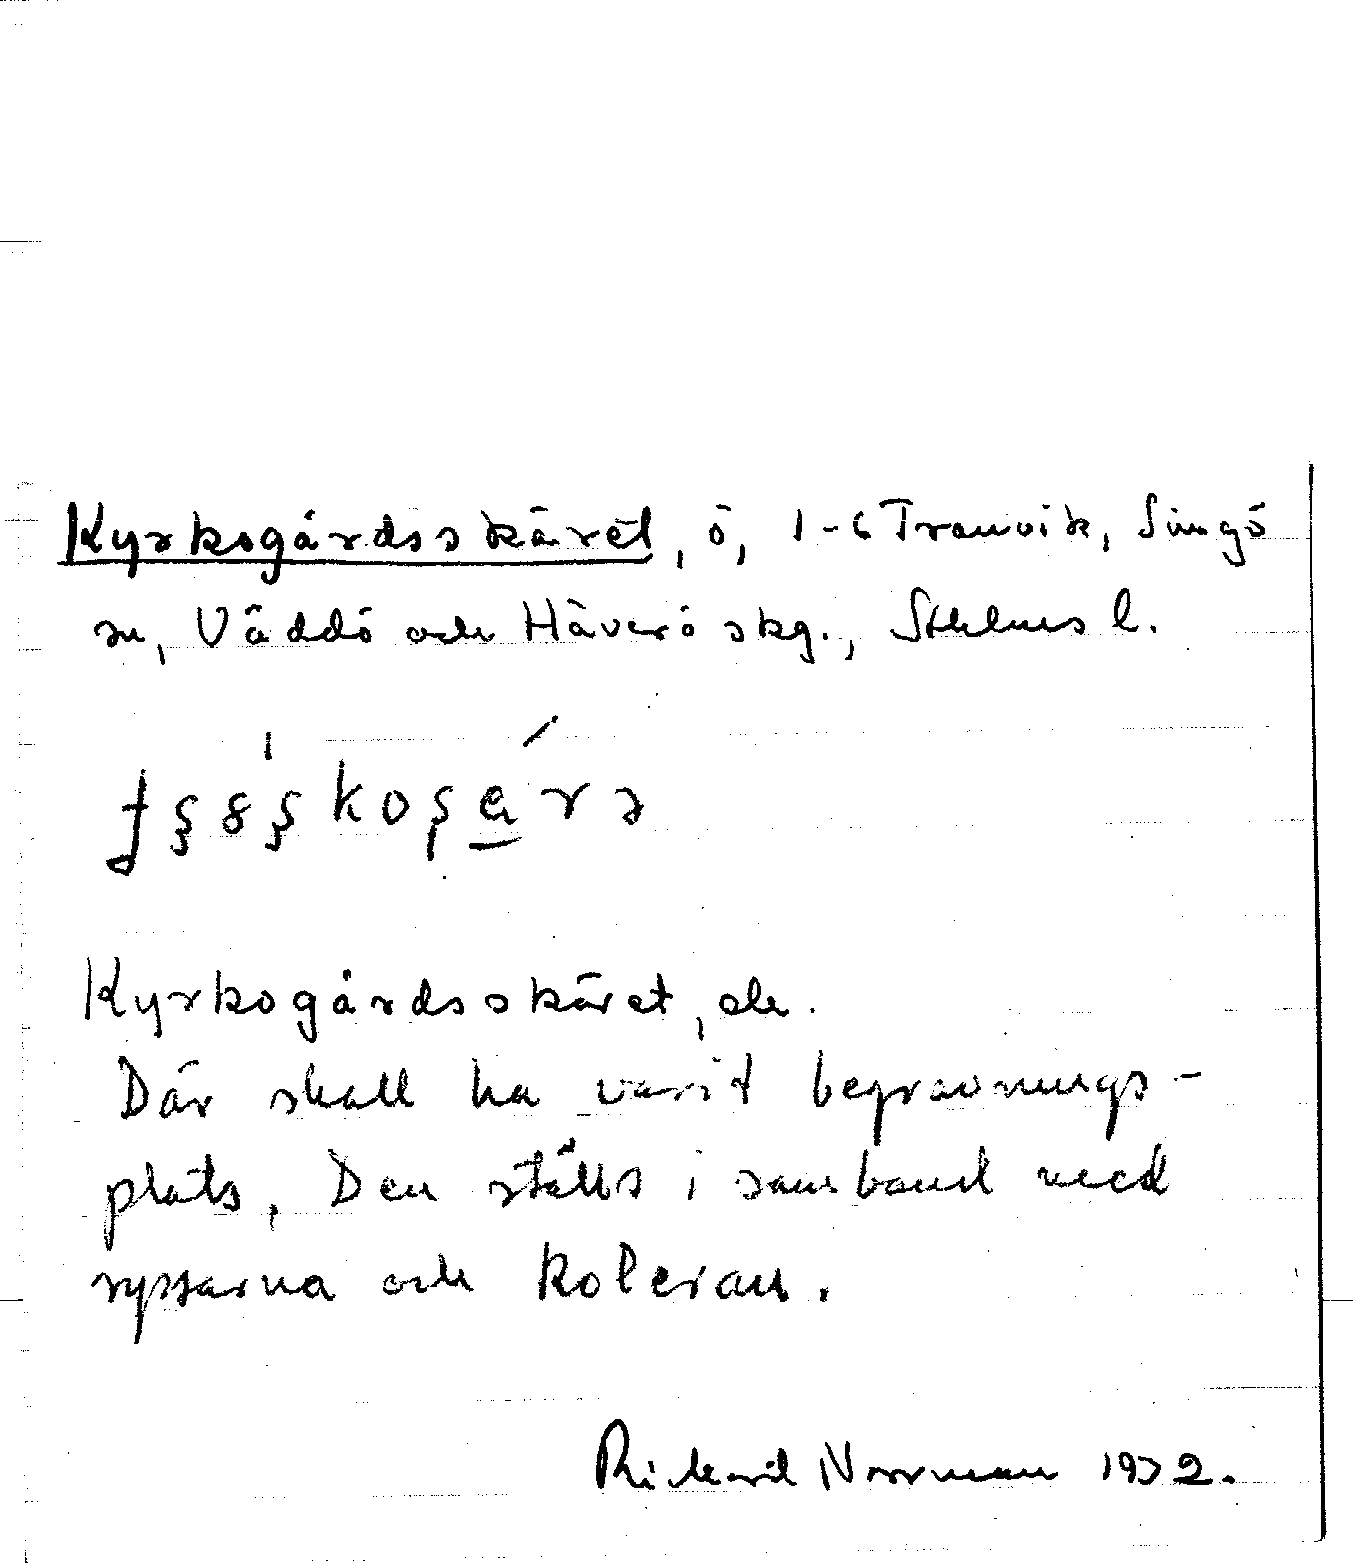 Kyrkogårdsskäret, ö, 1-6 Tranvik, Singö
sn, Väddö och Häverö skg., Sthlms l.
Kyrkogårdsskäret, ele.
Där skall ha varit begravnings-
plats. Den ställs i samband med
ryssarna och koleran.
Rickard Norrman 1972.